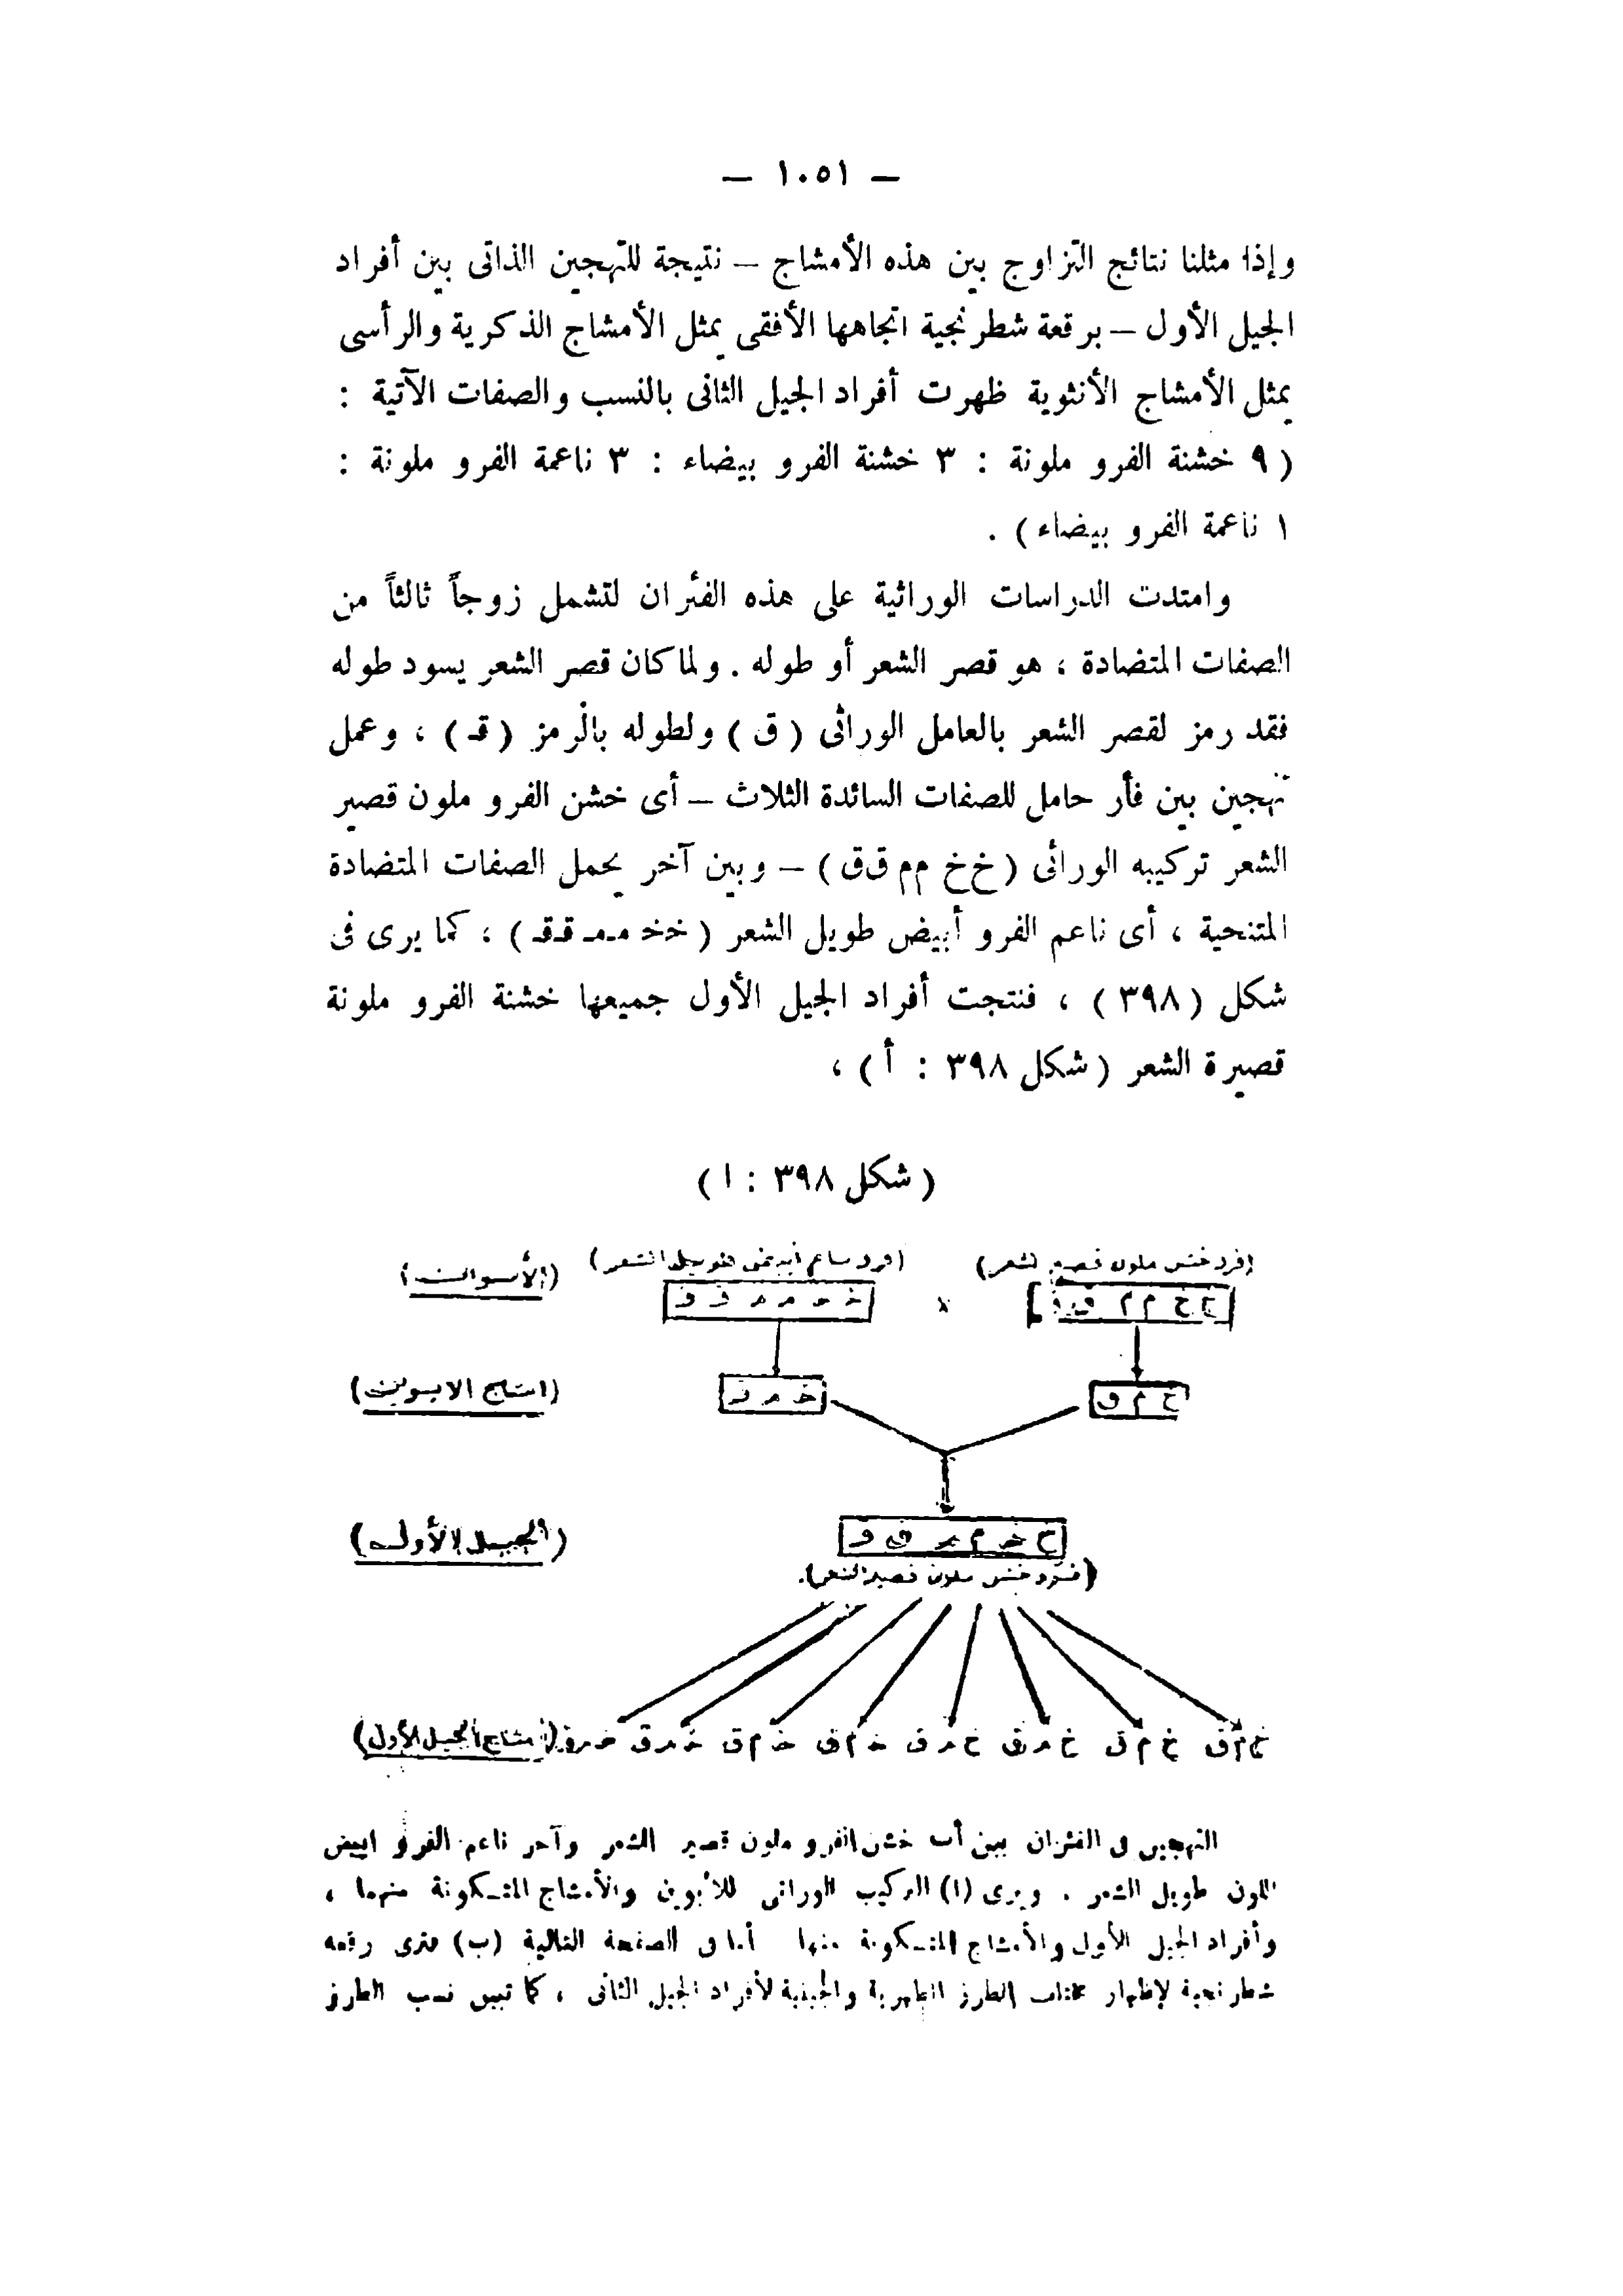 — ١٠٥١ —
وإذا مثلنا نتائج التزاوج بين هذه الأمشاج — نتيجة للتهجين الذاتى بين أفراد
الجيل الأول — برقعة شطرنجية اتجاهها الأفقى يمثل الأمشاج الذكرية والرأسى
يمثل الأمشاج الأنثوية ظهرت أفراد الجيل الثانى بالنسب والصفات الآتية :
( ٩ خشنة الفرو ملونة : ٣ خشنة الفرو بيضاء : ٣ ناعمة الفرو ملونة :
١ ناعمة الفرو بيضاء ) .
وامتدت الدراسات الوراثية على هذه الفئران لتشمل زوجاً ثالثاً من
الصفات المتضادة ، هو قصر الشعر أو طوله . ولما كان قصر الشعر يسود طوله
فقد رمز لقصر الشعر بالعامل الوراثى ( ق ) ولطوله بالرمز ( قـ ) ، وعمل
تهجين بين فأر حامل للصفات السائدة الثلاث — أى خشن الفرو ملون قصير
الشعر تركيبه الوراثى ( خ خ م م ق ق ) — وبين آخر يحمل الصفات المتضادة
المتنحية ، أى ناعم الفرو أبيض طويل الشعر ( خـ خـ مـ مـ قـ قـ ) ، كما يرى فى
شكل ( ٣٩٨ ) ، فنتجت أفراد الجيل الأول جميعها خشنة الفرو ملونة
قصيرة الشعر ( شكل ٣٩٨ : أ ) ،
( شكل ٣٩٨ : ا )
(فرد خشن ملون قصير الشعر) (فرد ناعم أبيض طويل الشعر) (الأبوان)
خ خ م م ق ق × خـ خـ مـ مـ قـ قـ
خ م ق خـ مـ قـ (امشاج الابوين)
خ خـ م مـ ق قـ (الجيل الأول)
(فرد خشن ملون قصير الشعر)
خ م ق خ م قـ خ مـ ق خ مـ قـ خـ م ق خـ م قـ خـ مـ ق خـ مـ قـ (امشاج الجيل الأول)
التهجين فى الفئران بين أب خشن الفرو ملون قصير الشعر وآخر ناعم الفرو ابيض
اللون طويل الشعر . ويرى (ا) التركيب الوراثى للأبوين والأمشاج المتكونة منهما ،
وأفراد الجيل الأول والأمشاج المتكونة منها أما فى الصفحة التالية (ب) فترى رقعة
شطرنجية لإظهار مختلف الطرز الظاهرية والجينية لأفراد الجيل الثانى ، كما تبين نسب الطرز